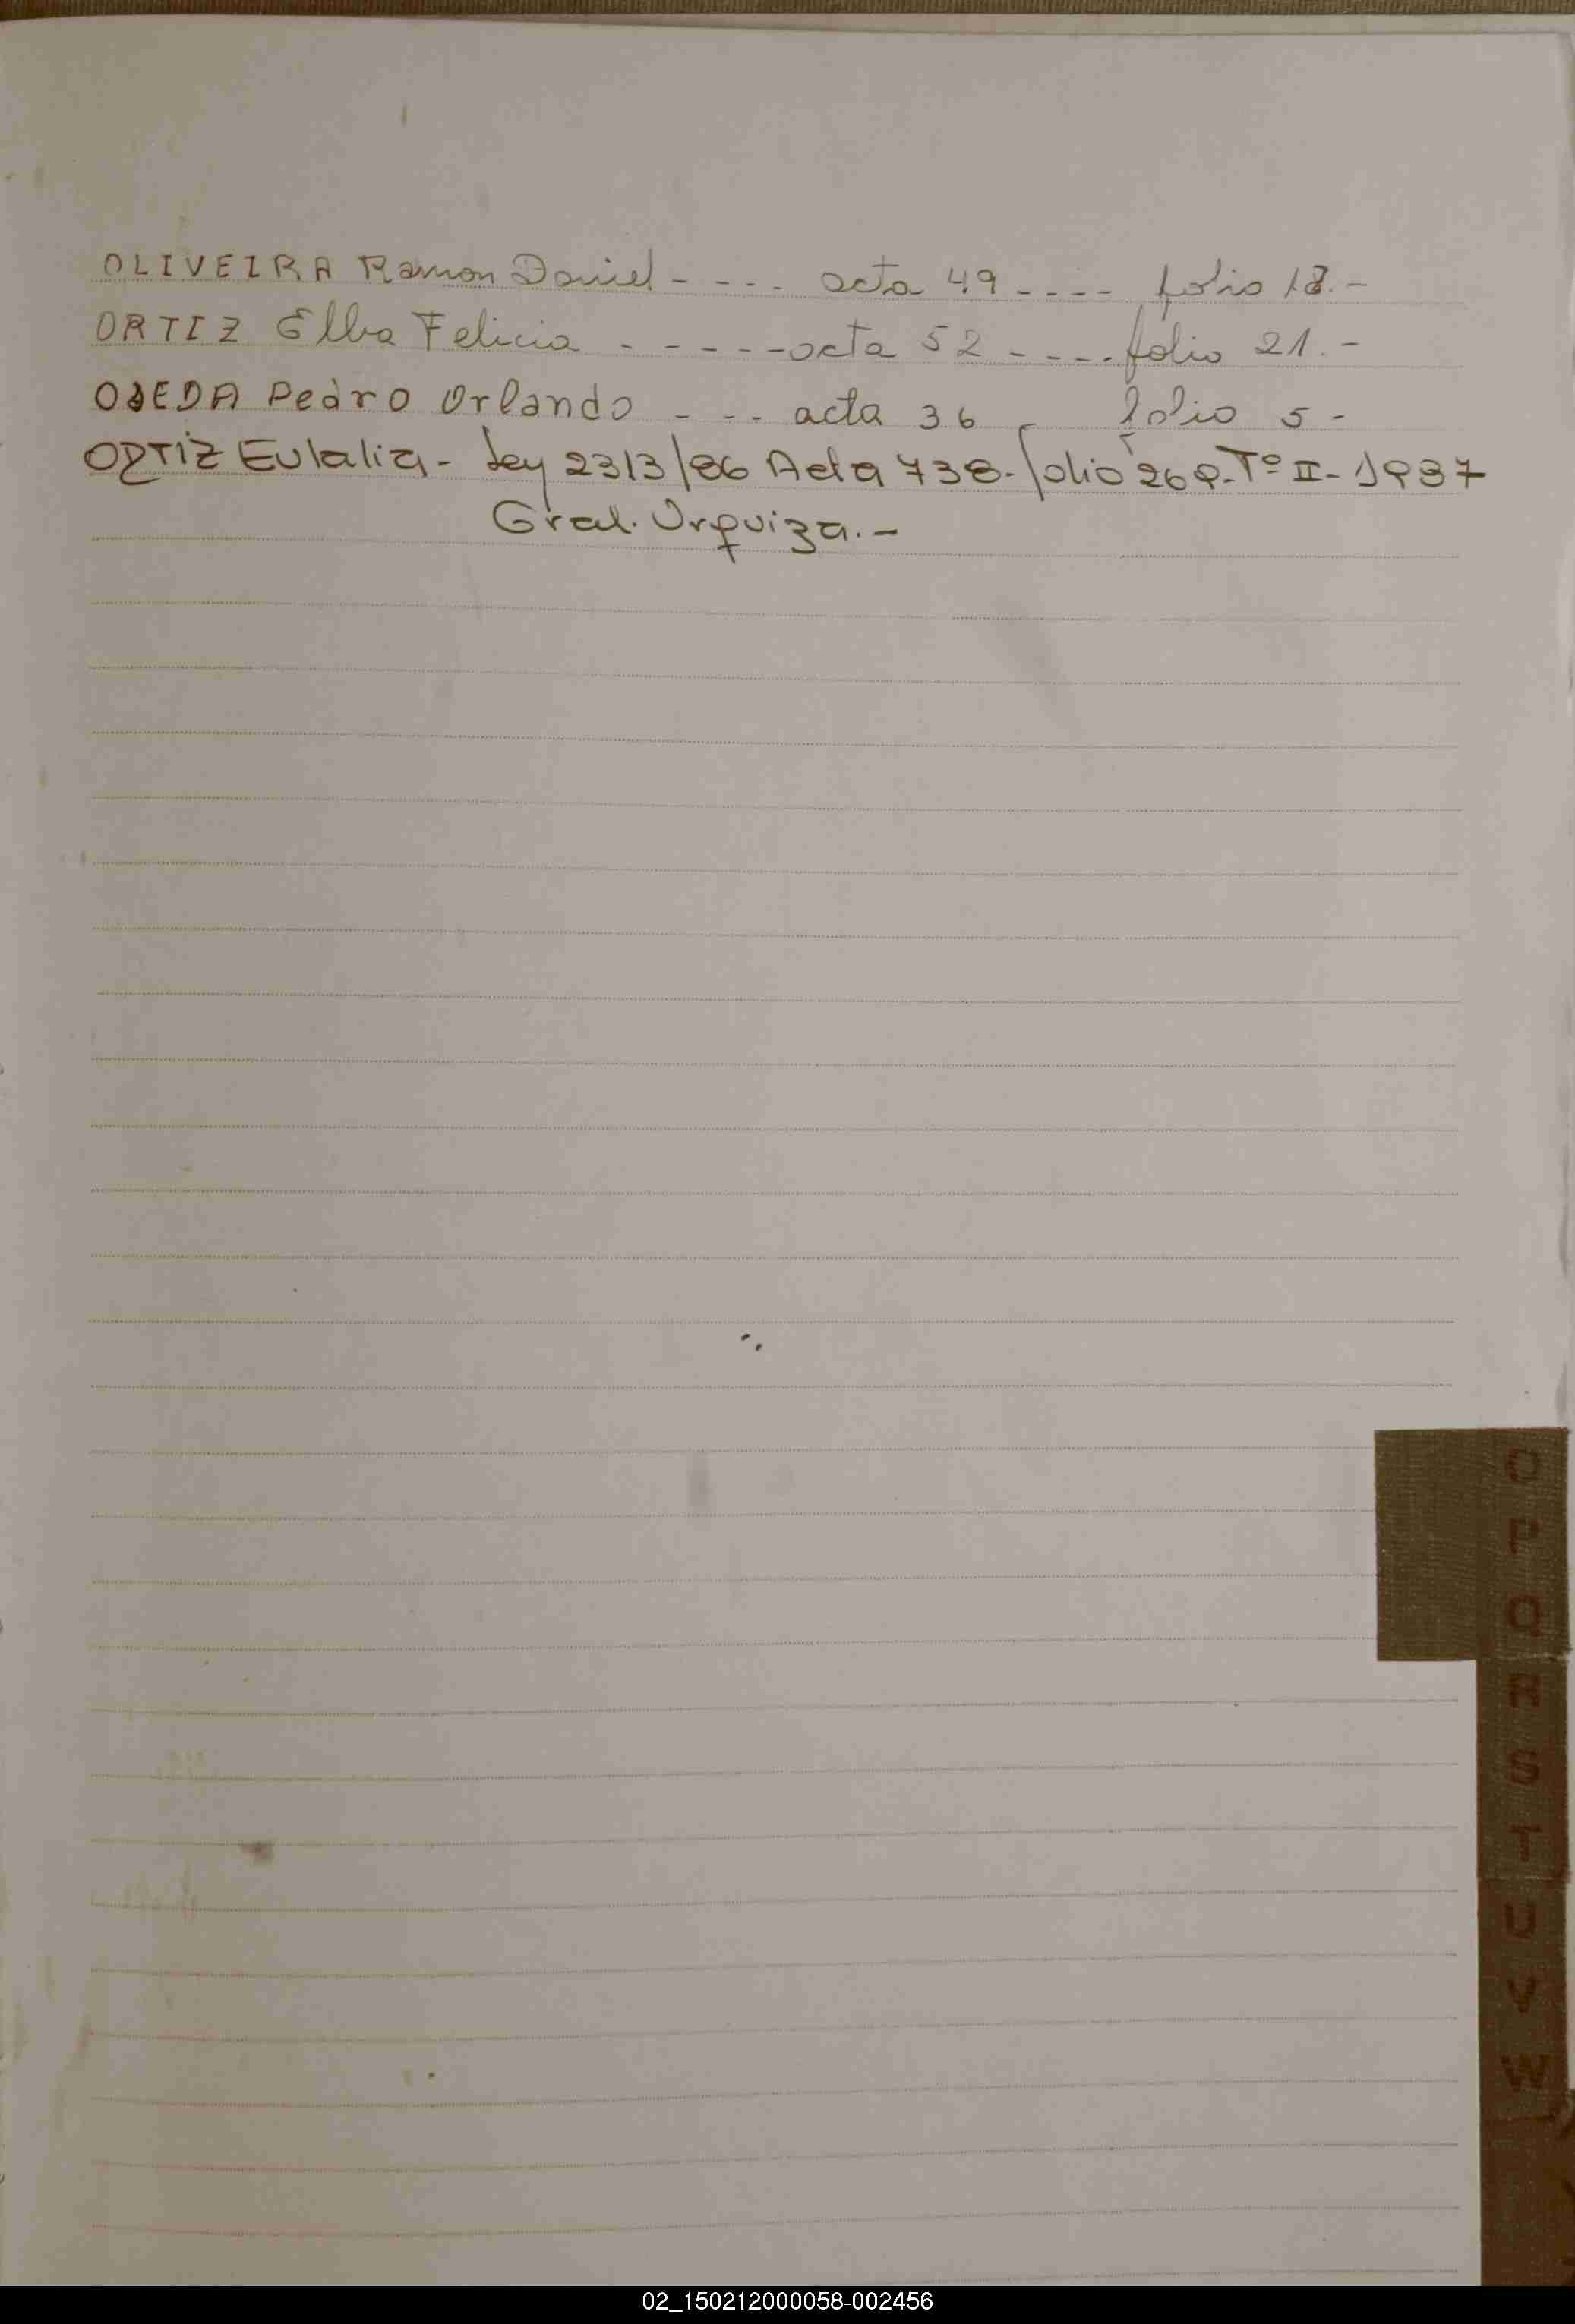 OLIVEIRA Ramon Daniel - - - - - acta 49 - - - - folio 18.-
ORTIZ Elba Felicia - - - - - - acta 52 - - - - folio 21.-
OJEDA Pedro Orlando - - - acta 36 folio 5 -
ORTIZ Eulalia - Ley 2313/86 Acta 738 - folio 269 - Tº II - 1937
Gral. Urquiza. -
O
P
Q
R
S
T
U
V
W
02_150212000058-002456